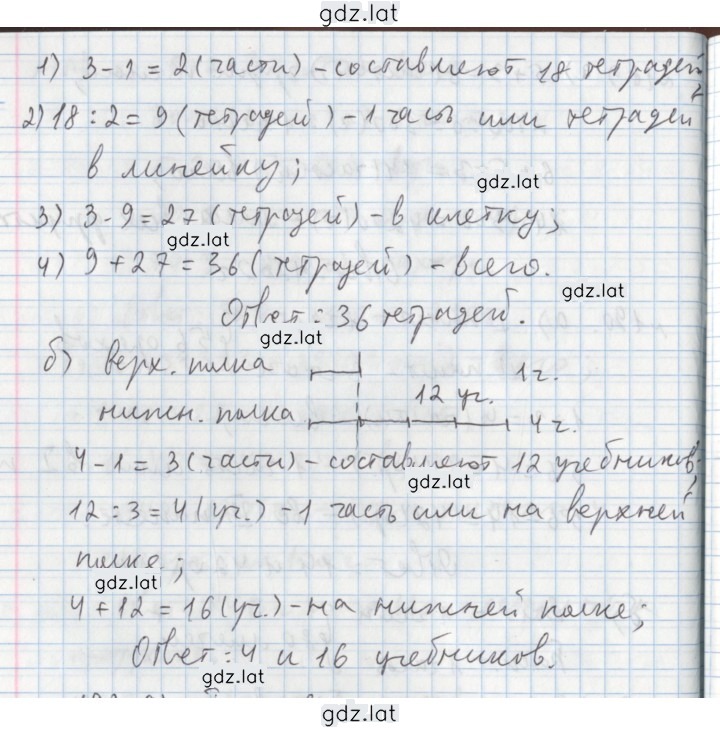 gdz.lat
1) 3-1=2(части)-составляют 18 тетрадей,
2) 18:2=9(тетрадей)-1 часть или тетрадей
в линейку;
gdz.lat
3) 3·9=27(тетрадей)-в клетку;
gdz.lat
4) 9+27=36(тетрадей)-всего.
gdz.lat
Ответ: 36 тетрадей.
gdz.lat
б) верх. полка 1ч.
12 уч.
нижн. полка 4ч.
4-1=3(части)-составляют 12 учебников;
gdz.lat
12:3=4(уч.)-1 часть или на верхней
полке;
gdz.lat
4+12=16(уч.)-на нижней полке;
Ответ: 4 и 16 учебников.
gdz.lat
gdz.lat